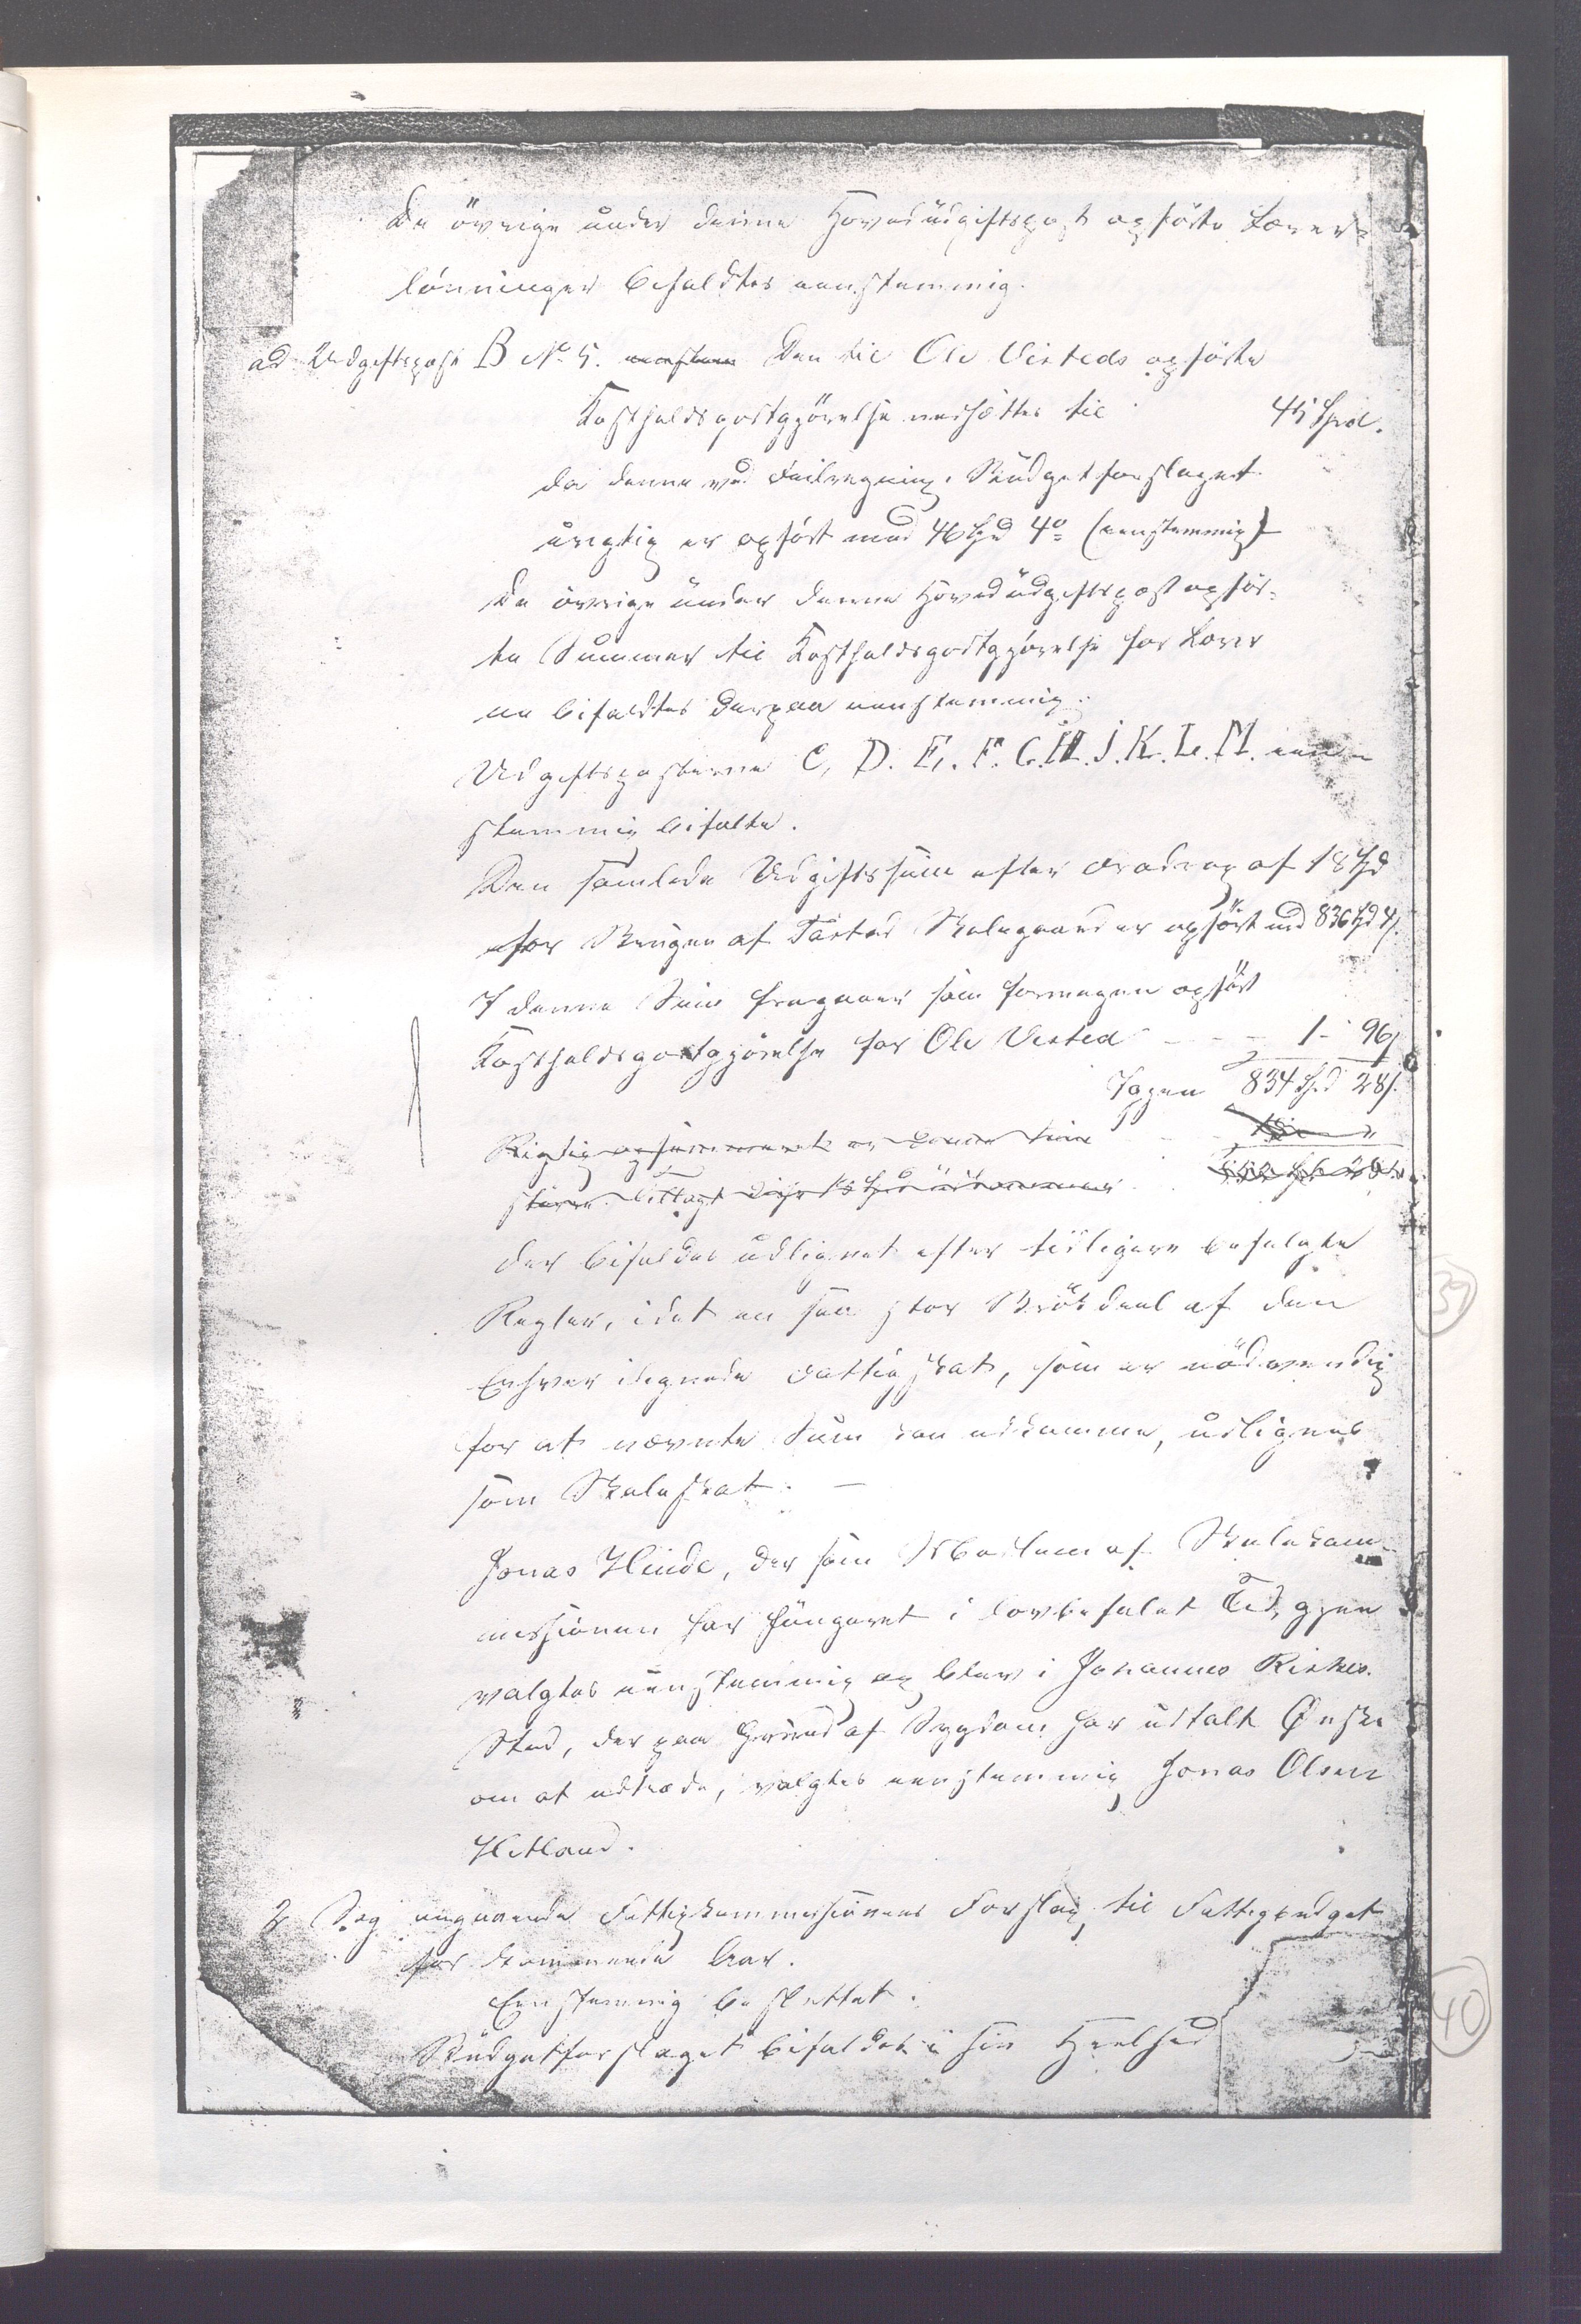 De övrige under denne Hovedüdgiftspost opförte Lærer-
lönninger bifaldtes eenstemmig.
ad Udgiftspost B No 5. Den til Ole Visteds opförte
Kostholdsgodtgjörelse nedsættes til 45 Spd.
da denne ved Feilregning i Büdgetforslaget
urigtig er opfört med 46 Spd 4o (eenstemmig)
De övrige ünder denne Hovedüdgiftspost opför-
te Summer til Kostholdsgodtgjörelse for Lærer
ne bifaldtes derpaa eenstemmig.
Udgiftsposterne C, D. E. F. G. H. J. K. L. M. een-
stemmig bifaldte.
Den samlede Udgiftssum efter Fradrag af 18 Spd
for Brugen af Tasted Skolegaard er opfört med 836 Spd 4 s.
I denne Sum fragaaer som formegen opfört
Kostholdsgodtgjörelse for Ole Visted - - - 1 - 96 s
Igjen 834 Spd 28 s.
Rigtig opsummeret er denne Sum
større tillagt disse 18 Spd
der bifaldes üdlignet efter tidligere befulgte
Regler, idet en saa stor Brökdeel af den
Enhver ilignede Fattigskat, som er nödvendig
for at nævnte Sum kan udkomme, udlignes
som Skoleskat. —
Jonas Hinde, der som Medlem af Skolekom-
missionen har füngeret i lovbefalet Tid, gjen
valgtes eenstemmig og blev i Johannes Riskes
Sted, der paa Grund af Sygdom har udtalt Ønske
om at udtræde, valgtes eenstemmig Jonas Olsen
Hetland.
2 Sag angaaende Fattigkommissionens Forslag til Fattigbudget
for kommende Aar.
Eenstemmig besluttet.
Büdgetforslaget bifaldes i sin Heelhed
39
40